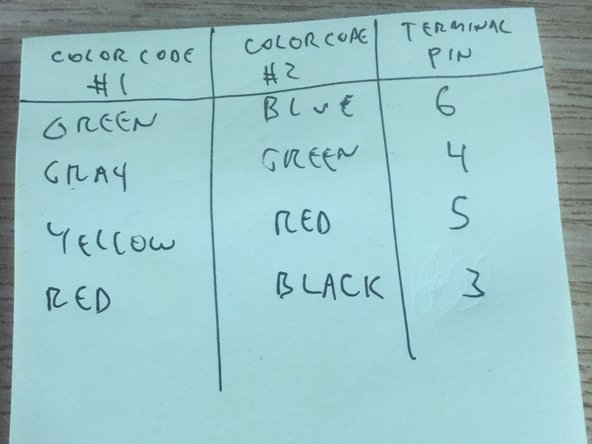 COLOR CODE #1 COLOR CODE #2 TERMINAL PIN
GREEN BLUE 6
GRAY GREEN 4
YELLOW RED 5
RED BLACK 3